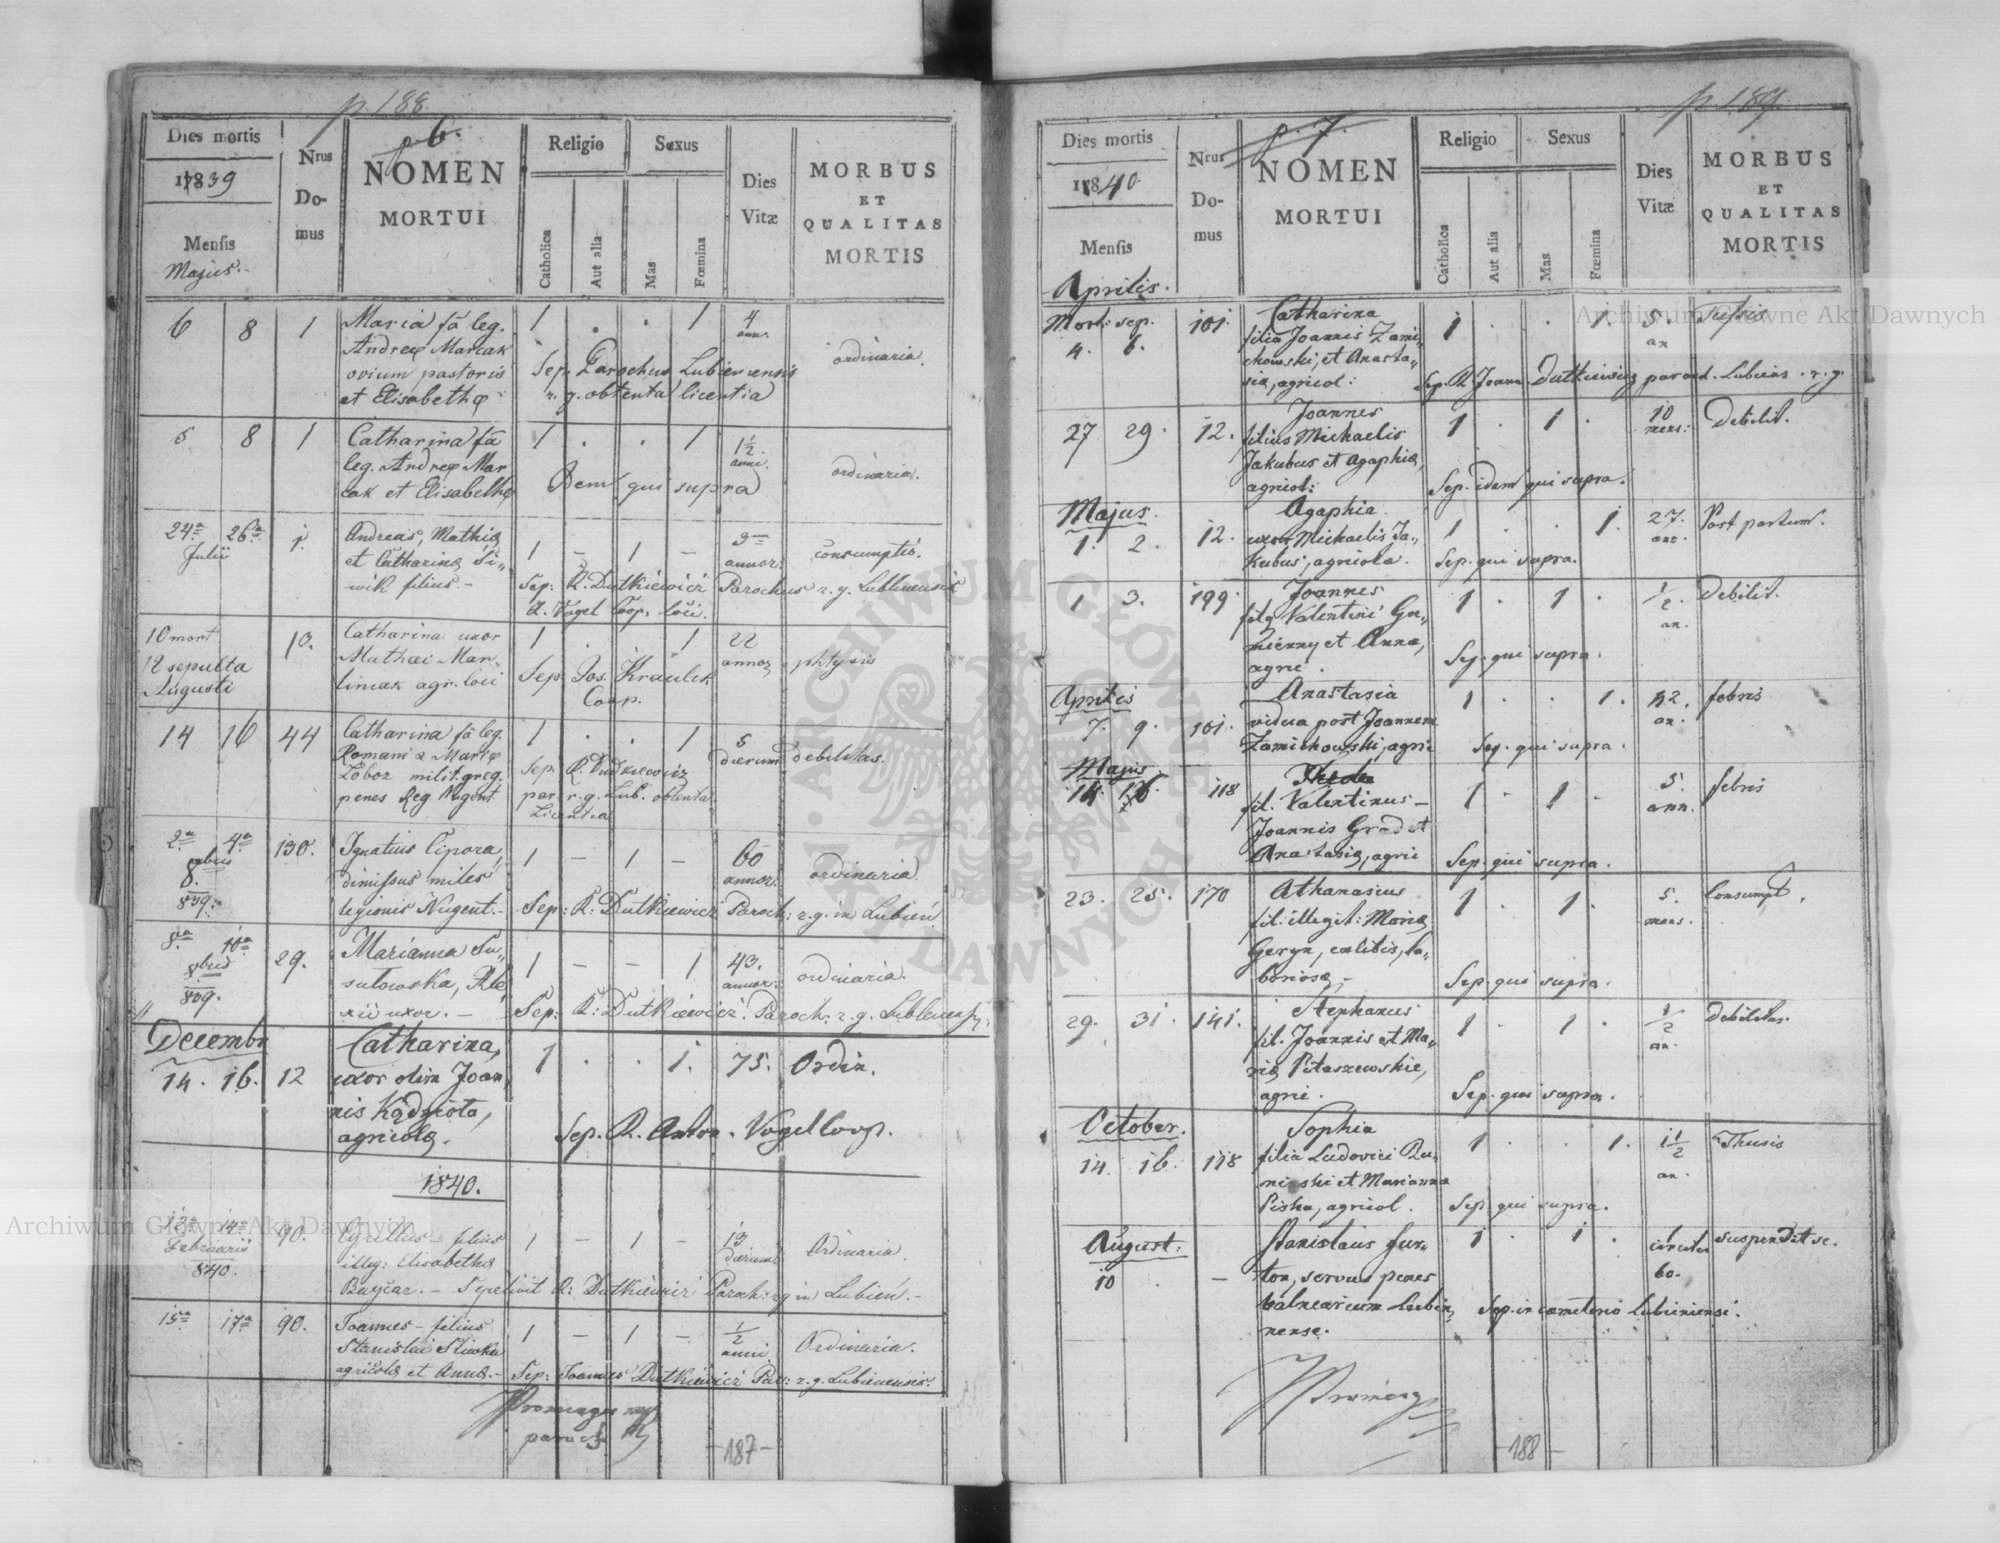 p. 188
p. 6.
Dies mortis
1839
Mensis
Majus.
Nrus
Do-
mus
NOMEN
MORTUI
Religio
Sexus
Catholica
Aut alia
Mas
Fœmina
Dies
Vitæ
MORBUS
ET
QUALITAS
MORTIS
6 8 1 Maria fa leg. 1 . . 1 4 ann. ordinaria.
Andreę Marcak
ovium pastoris Sep. Parochus Lubienensis
et Elisabethę r. g. obtenta licentia
5 8 1 Catharina fa 1 . . 1 1½ anni. ordinaria.
leg. Andreę Mar
cak et Elisabethę Idem qui supra
24a 26a 1. Andreas, Mathiæ 1 – 1 – annor: consumptis.
Julii et Catharinæ Si-
wik filius. – Sep: R. Dutkiewicz Parochus r. g. Lublinensis
A. Vogel Coop. loci.
10 mort 10. Catharina uxor 1 . . 1 22 annor phtysis
12 sepulta Mathæi Mar-
Augusti liniak agr. loci Sep. Jos. Kraulek
Coop.
14 16 44 Catharina fa leg. 1 . . 1 5 dierum debilitas.
Romani & Marię Sep. R. Dutkiewicz
Loboz milit. greg. par. r. g. Lub. obtenta
penes Reg Nugent Licentia
2a 4a 130. Ignatius Cipora, 1 – 1 – 60 annor: ordinaria
8bris dimissus miles
839. legionis Nugent. – Sep: R: Dutkiewicz Paroch: r. g. in Lubień
8a 10a 29. Marianna Su- 1 – – 1 43. annor: ordinaria.
9bris sulowska, Ale
839. xii uxor. – Sep: R: Dutkiewicz. Paroch: r. g.
Decembr Catharina, 1 . . 1. 75. Ordin.
14. 16. 12 uxor olim Joan
nis Kądziota,
agricolæ. Sep. R. Anton. Vogel Coop.
1840.
12a 14a 90. Cyrillus filius 1 – 1 – 13 dierum Ordinaria.
Februarii illeg: Elisabethæ
840. Buyczar. – Sepelivit R: Dutkiewicz Paroch: rg in Lubień. –
15a 17a 90. Joannes – filius 1 – 1 – ½ anni Ordinaria.
Stanislai Sliwka
agricolæ et Annæ. – Sep: Joannes Dutkiewicz Par: r. g. Lubienensis.
-187-
p. 189
p. 7.
Dies mortis
1840
Mensis
Aprilis.
Nrus
Do-
mus
NOMEN
MORTUI
Religio
Sexus
Catholica
Aut alia
Mas
Fœmina
Dies
Vitæ
MORBUS
ET
QUALITAS
MORTIS
Mort: sep. 101. Catharina 1 . . 1. 5. an Tussis
4. 6. filia Joannis Zami-
chowski, et Anasta-
siæ, agricol: Sep. R. Joann Dutkiewicz paroch. Lubiens. r. g.
27 29. 12. Joannes 1 . 1 . 10 mens: Debilit.
filius Michaelis
Jakubus et Agaphiæ,
agricol: Sep. idem qui supra.
Majus. Agaphia
1. 2. 12. uxor Michaelis Ja- 1 . . 1. 27. ann. Post partum.
kubus, agricola. Sep. qui supra.
1 3. 199. Joannes 1 . 1 . ½ an. Debilit.
fil Valentini Gu-
mienny et Annæ,
agric. Sep. qui supra.
Aprilis Anastasia 1 . . 1. 42. an. febris
7. 9. 101. vidua post Joannem
Zamichowski, agric Sep. qui supra.
Majus
14 16. 118 fil. Valentinus – 1 . 1 . 5. ann. febris
Joannis Grad et
Anastasiæ, agric Sep. qui supra.
23. 25. 170 Athanasius 1 . 1 . 5. mens. Consumpt.
fil. illegit: Mariæ
Geryn, cælibis, la-
boriosæ, – Sep. qui supra.
29. 31. 141. Stephanus 1 . 1 . ½ an. Debilitas.
fil. Joannis et Ma-
riæ Pitaszewskie,
agric. Sep. qui supra.
October. Sophia 1 . . 1. 1½ an. Thusis
14. 16. 118 filia Ludovici Ru-
ni ski et Marianna
Piska, agricol. Sep. qui supra.
August: Stanislaus Jur- 1 . 1 . circiter 60. suspendit se.
10 . – ton, servus penes
balnearium Lubin,
nense. Sep. in cæmeterio Lubiniensi.
-188-
Archiwum Główne Akt Dawnych
Archiwum Główne Akt Dawnych
ARCHIWUM GŁÓWNE AKT DAWNYCH